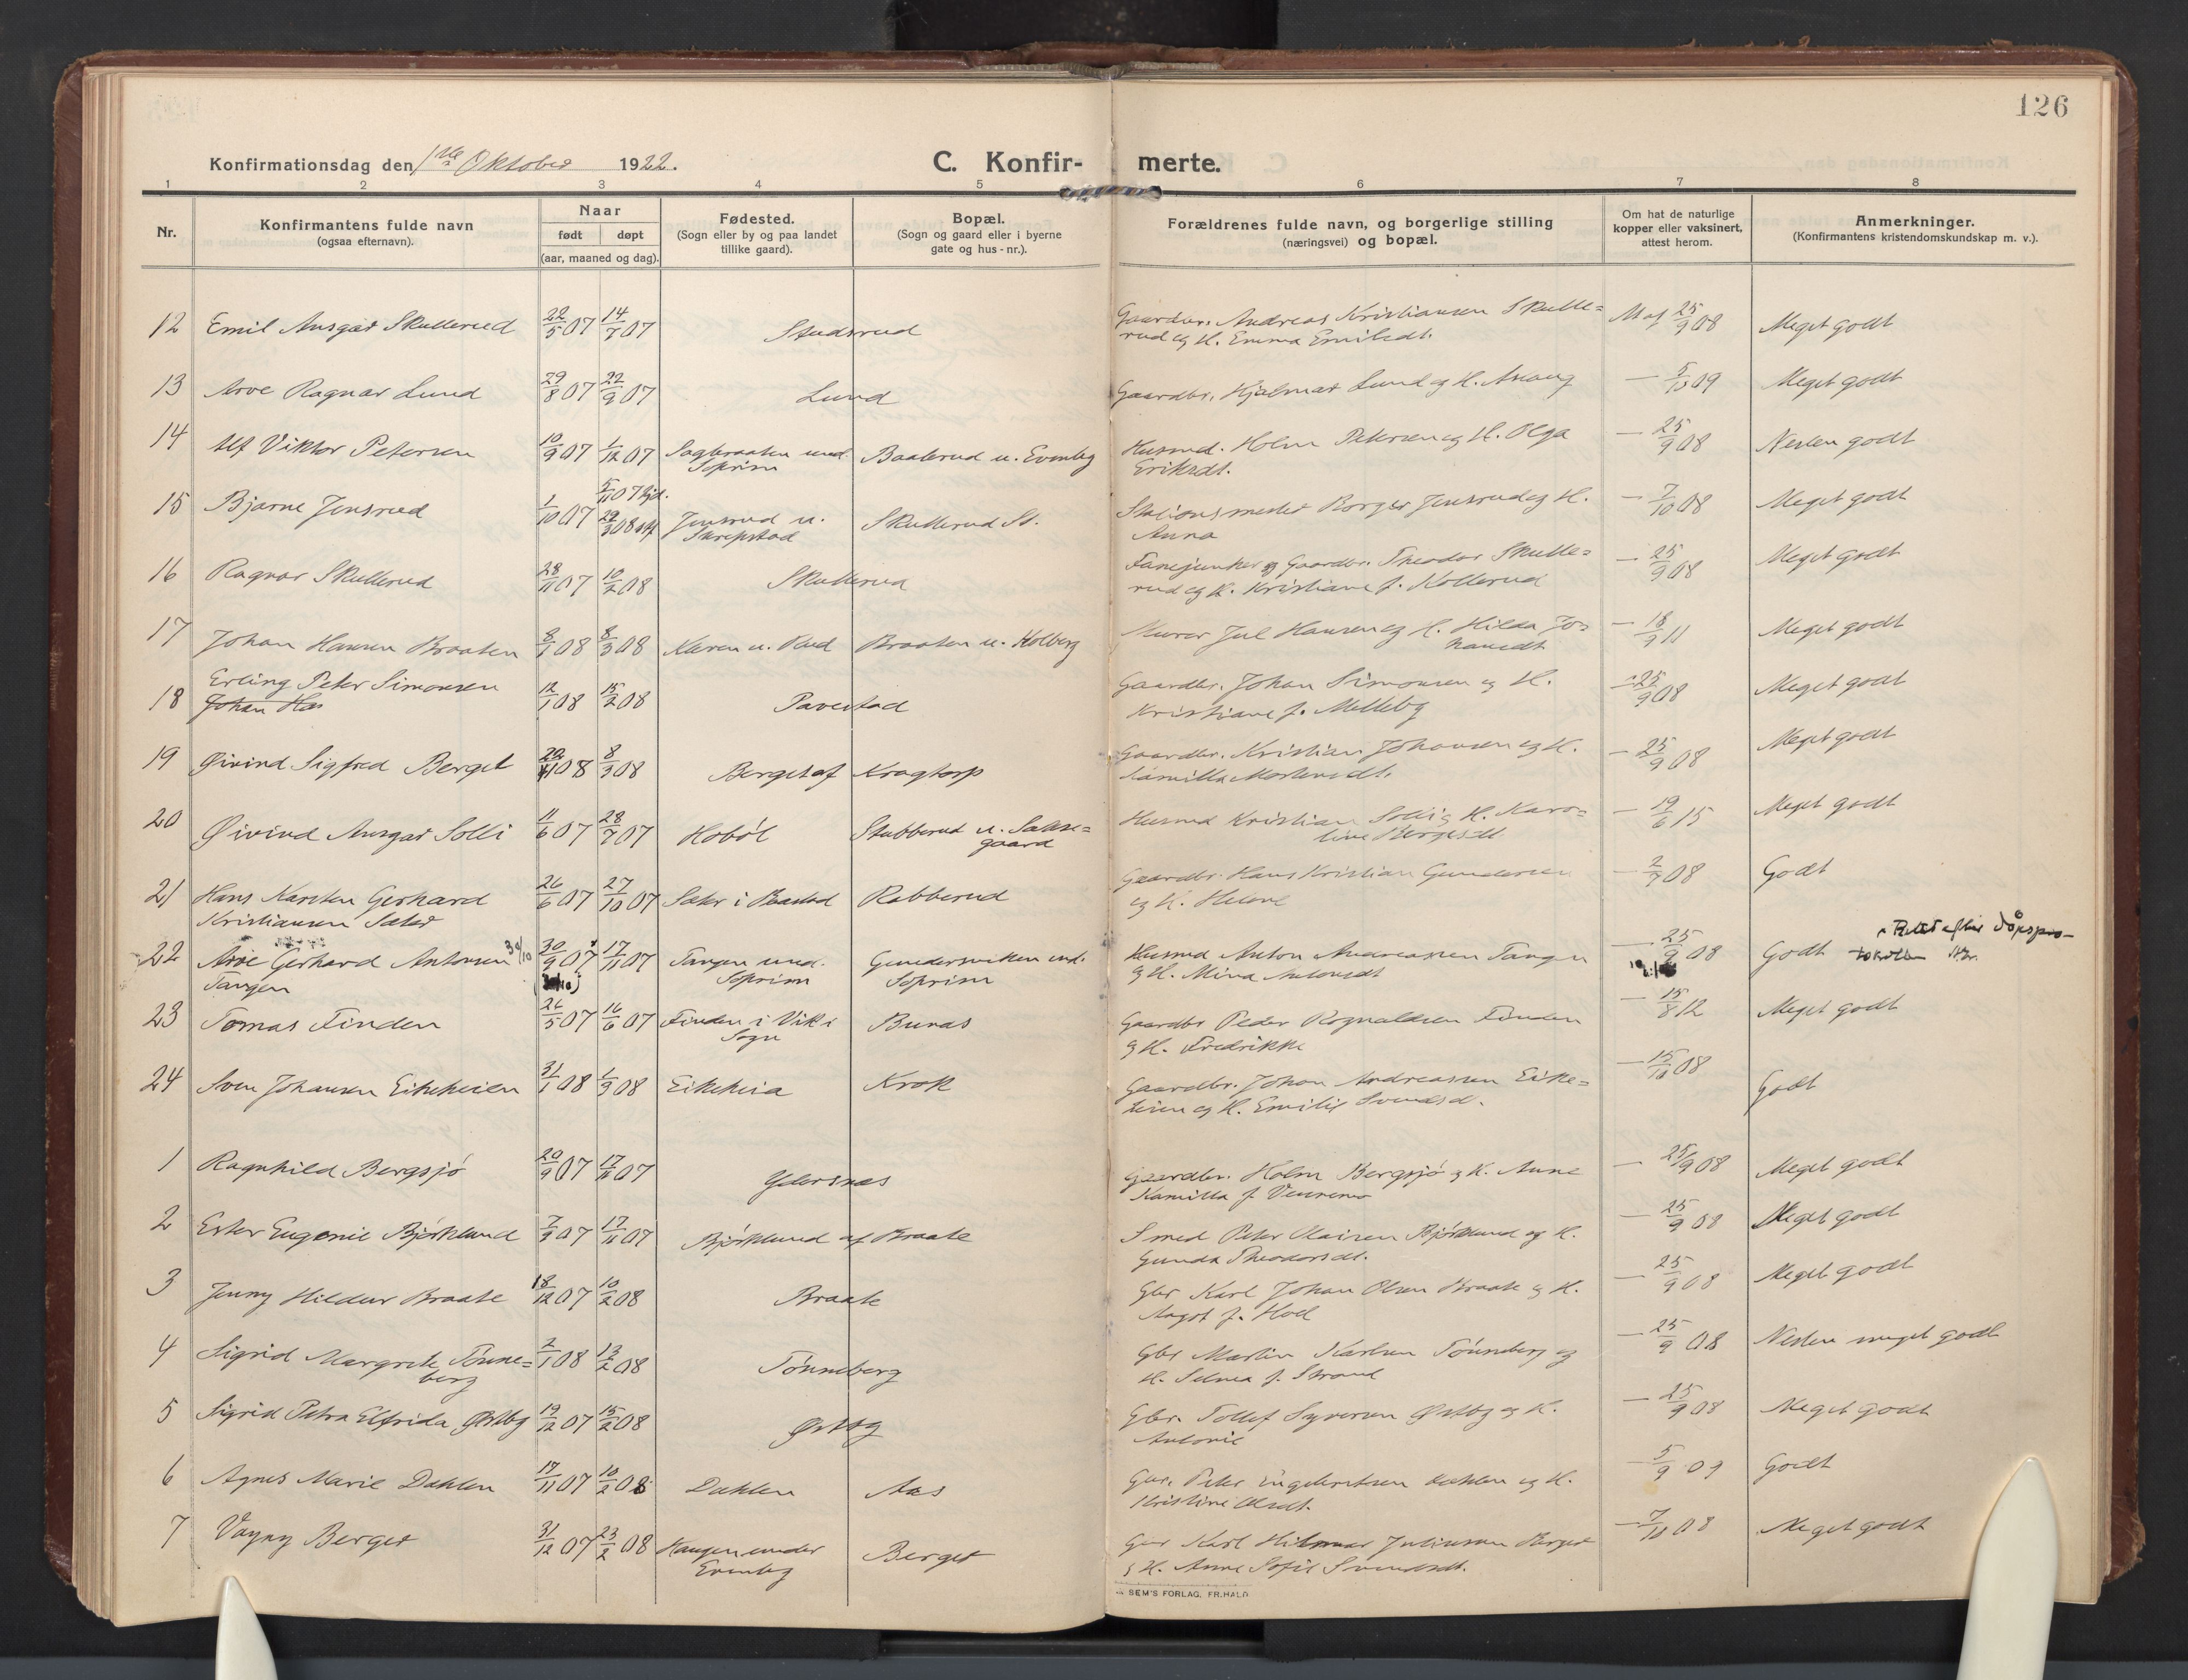 126
Konfirmationsdag den 1ste Oktober 1922. C. Konfir- merte.
1 2 3 4 5 6 7 8
Nr.
Konfirmantens fulde navn
(ogsaa efternavn).
Naar
født døpt
(aar, maaned og dag).
Fødested.
(Sogn eller by og paa landet
tillike gaard).
Bopæl.
(Sogn og gaard eller i byerne
gate og hus-nr.).
Forældrenes fulde navn, og borgerlige stilling
(næringsvei) og bopæl.
Om hat de naturlige
kopper eller vaksinert,
attest herom.
Anmerkninger.
(Konfirmantens kristendomskundskap m. v.).
12 Emil Ansgar Skullerud 22/5 07 14/7 07 Studsrud Gaardbr. Andreas Kristiansen Skulle= 25/9 08 Meget godt
rud og H. Emma Emilsdt.
13 Arve Ragnar Lund 29/8 07 22/9 07 Lund Gaardbr. Hjalmar Lund og H. Aslaug — 5/10 09 Meget godt
14 Alf Viktor Petersen 10/9 07 1/12 07 Sagbraaten und. Baalerud u. Evenby Husmd. Holm Petersen og H. Olga — 25/9 08 Nesten godt
Soprim Eriksdt.
15 Bjarne Jensrud 1/10 07 5/11 07 hjd. 29/3 08 stf Jensrud u. Skullerud St. Stationsmester Borger Jensrud og H. — 7/10 08 Meget godt
Skrepstad Anna
16 Ragnar Skullerud 28/11 07 10/2 08 Skullerud Fanejunker og Gaardbr. Theodor Skulle= — 25/9 08 Meget godt
rud og H. Kristiane f. Kollerud
17 Johan Hansen Braaten 8/1 08 8/3 08 u. Rud Braaten u. Holberg Murer Jul Hansen og H. Hilda Jo= — 18/9 11 Meget godt
hansdt
Erling Peter Simonsen
18 Johan Han 12/1 08 15/2 08 Pavestad Gaardbr. Johan Simonsen og H. — 25/9 08 Meget godt
Kristiane f. Melleby
19 Øivind Sigfred Berget 08 8/3 08 Berget af Kragtorp Gaardbr. Kristian Johansen og H. — 25/9 08 Meget godt
Kamilla Martinsdt.
20 Øivind Ansgar Solli 11/6 07 28/7 07 Hobøl Stubberud u. Sakse= Husmd Kristian Solli og H. Karo= — 19/6 15 Meget godt
gaard line Børgesdt
21 Hans Karsten Gerhard 26/6 07 27/10 07 Sæter i Baastad Rabberud Gaardbr. Hans Kristian Gundersen — 2/7 08 Godt
Kristiansen Sæter og H. Helene
22 Arve Gerhard Antonsen 30/10 30/9 07 17/11 07 Tangen und. Gundersviken und. Husmd Anton Andreassen Tangen — 25/9 08 Godt Rettet efter døpspro-
tokollen
Tangen Soprim Soprim og H. Mina Antonsdt
23 Tomas Finden 26/5 07 16/6 07 Finden i Vik i Bunas Gaardbr Peder Rognaldsen Finden — 15/8 12 Meget godt
Sogn og H. Fredrikke
24 Sven Johansen Eikeheien 31/1 08 1/3 08 Eikeheia Krok Gaardbr. Johan Andreassen Eike= — 15/10 08 Godt
heien og H. Emilie Svendsd.
1 Ragnhild Bergsjø 20/9 07 17/11 07 Ydersnes Gaardbr. Holm Bergsjø og H. Anne — 25/9 08 Meget godt
Kamilla f. Vennemo
2 Ester Eugenie Bjørklund 7/9 07 17/11 07 Bjørklund af Braate Smed Peter Olaisen Bjørklund og H. — 25/9 08 Meget godt
Gunda Theodorsdt.
3 Jenny Hildur Braate 18/12 07 10/2 08 Braate Gbr Karl Johan Olsen Braate og H. — 25/9 08 Meget godt
Aagot f. Hoel
4 Sigrid Margrete Tønne= 2/1 08 13/2 08 Tønneberg Gbr Martin Karlsen Tønneberg og — 25/9 08 Nesten meget godt
berg H. Selma f. Strand
5 Sigrid Petra Elfrida Østby 19/12 07 15/2 08 Østby Gbr. Tollef Syversen Østby og H. — 25/9 08 Meget godt
Antonie
6 Agnes Marie Dahlen 17/11 07 10/2 08 Dahlen Aas Gbr. Peter Engebretsen Dahlen og H. — 5/9 09 Godt
Kristine Olsdt.
7 Vagny Berget 31/12 07 23/2 08 Haugen under Berget Gbr Karl Hilmar Juliussen Berget — 7/10 08 Meget godt
Evenby og H. Anne Sofie Svendsdt.
SEM'S FORLAG, FR.HALD